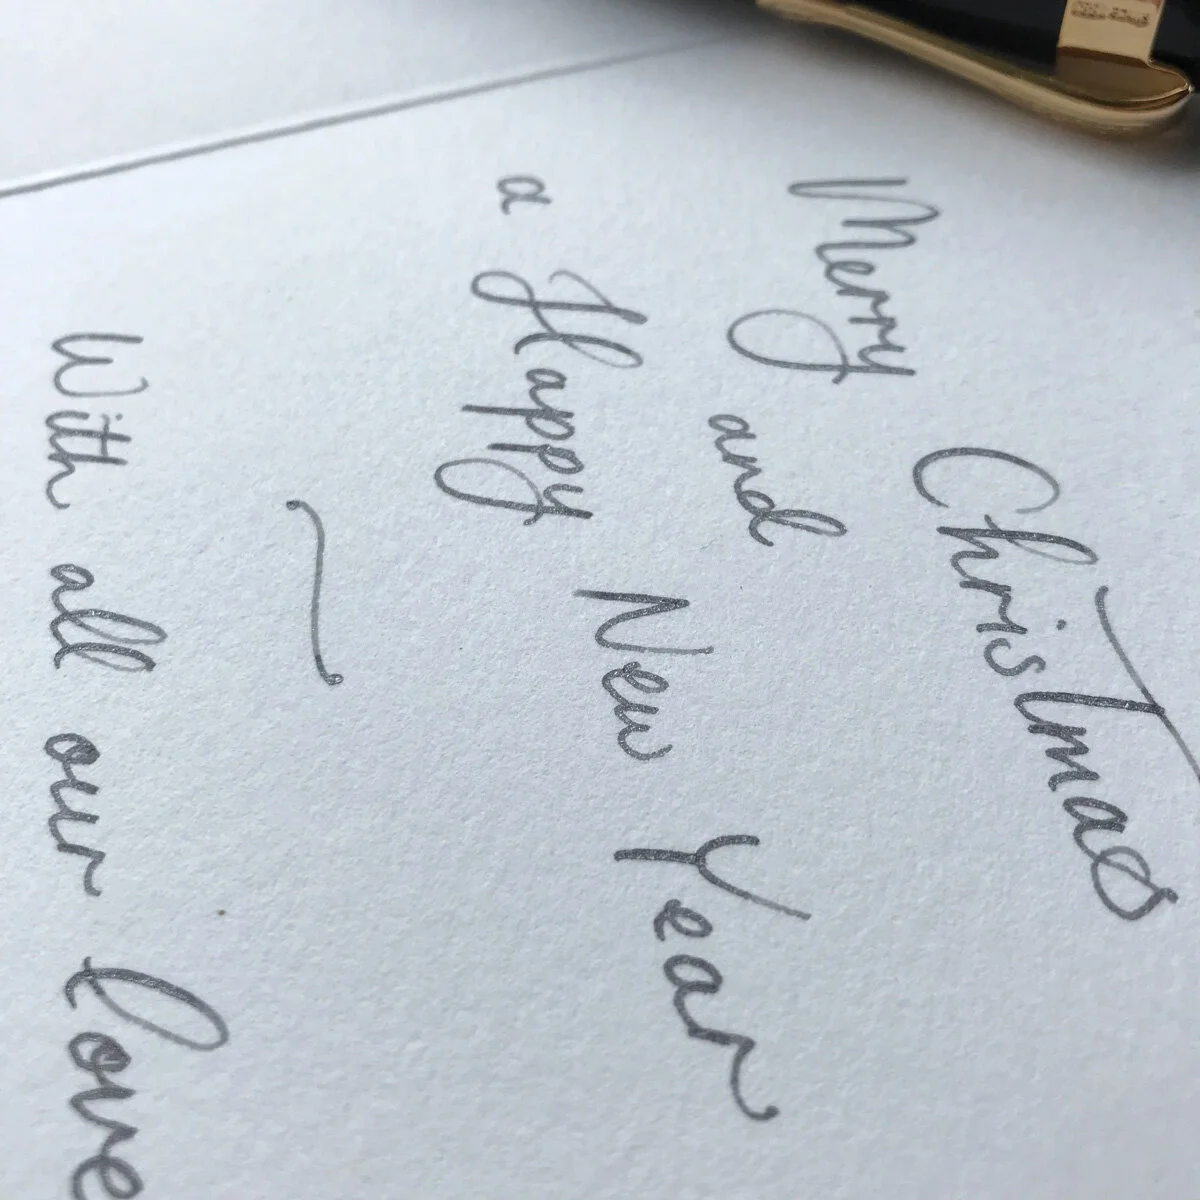 Merry Christmas
and
a Happy New Year
With all our love